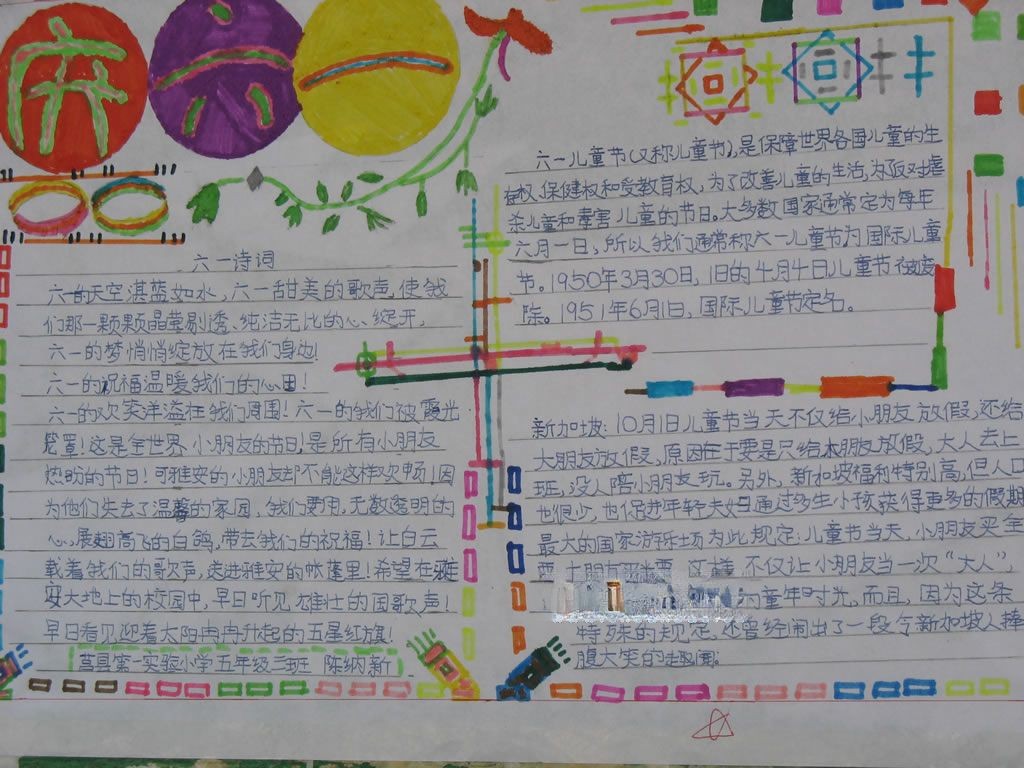 庆六一
六一诗词
六一的天空湛蓝如水,六一甜美的歌声,使我
们那一颗颗晶莹剔透、纯洁无比的心绽开,
六一的梦悄悄绽放在我们身边!
六一的祝福温暖我们的心田!
六一的欢笑洋溢在我们周围!六一的我们被霞光
笼罩!这是全世界小朋友的节日!是所有小朋友
热盼的节日!可雅安的小朋友却不能这样欢畅!因
为他们失去了温馨的家园,我们要用,无数透明的
心,展翅高飞的白鸽,带去我们的祝福!让白云
载着我们的歌声,走进雅安的帐蓬里!希望在雅
安大地上的校园中,早日听见雄壮的国歌声!
早日看见迎着太阳冉冉升起的五星红旗!
莒县第一实验小学五年级三班 陈纳新
六一儿童节(又称儿童节),是保障世界各国儿童的生
存权、保健权和受教育权,为了改善儿童的生活,为反对虐
杀儿童和毒害儿童的节日。大多数国家通常定为每年
六月一日,所以我们通常称六一儿童节为国际儿童
节。1950年3月30日,旧的4月4日儿童节被废
除。1951年6月1日,国际儿童节定名。
新加坡:10月1日儿童节当天不仅给小朋友放假,还给
大朋友放假,原因在于要是只给小朋友放假,大人去上
班,没人陪小朋友玩。另外,新加坡福利特别高,但人口
也很少,也促进年轻夫妇通过多生小孩获得更多的假期
最大的国家游乐场为此规定:儿童节当天,小朋友买全
票,大朋友买半票 这样 不仅让小朋友当一次“大人”,
的童年时光,而且,因为这条
特殊的规定,还曾经闹出了一段令新加坡人捧
腹大笑的趣闻: